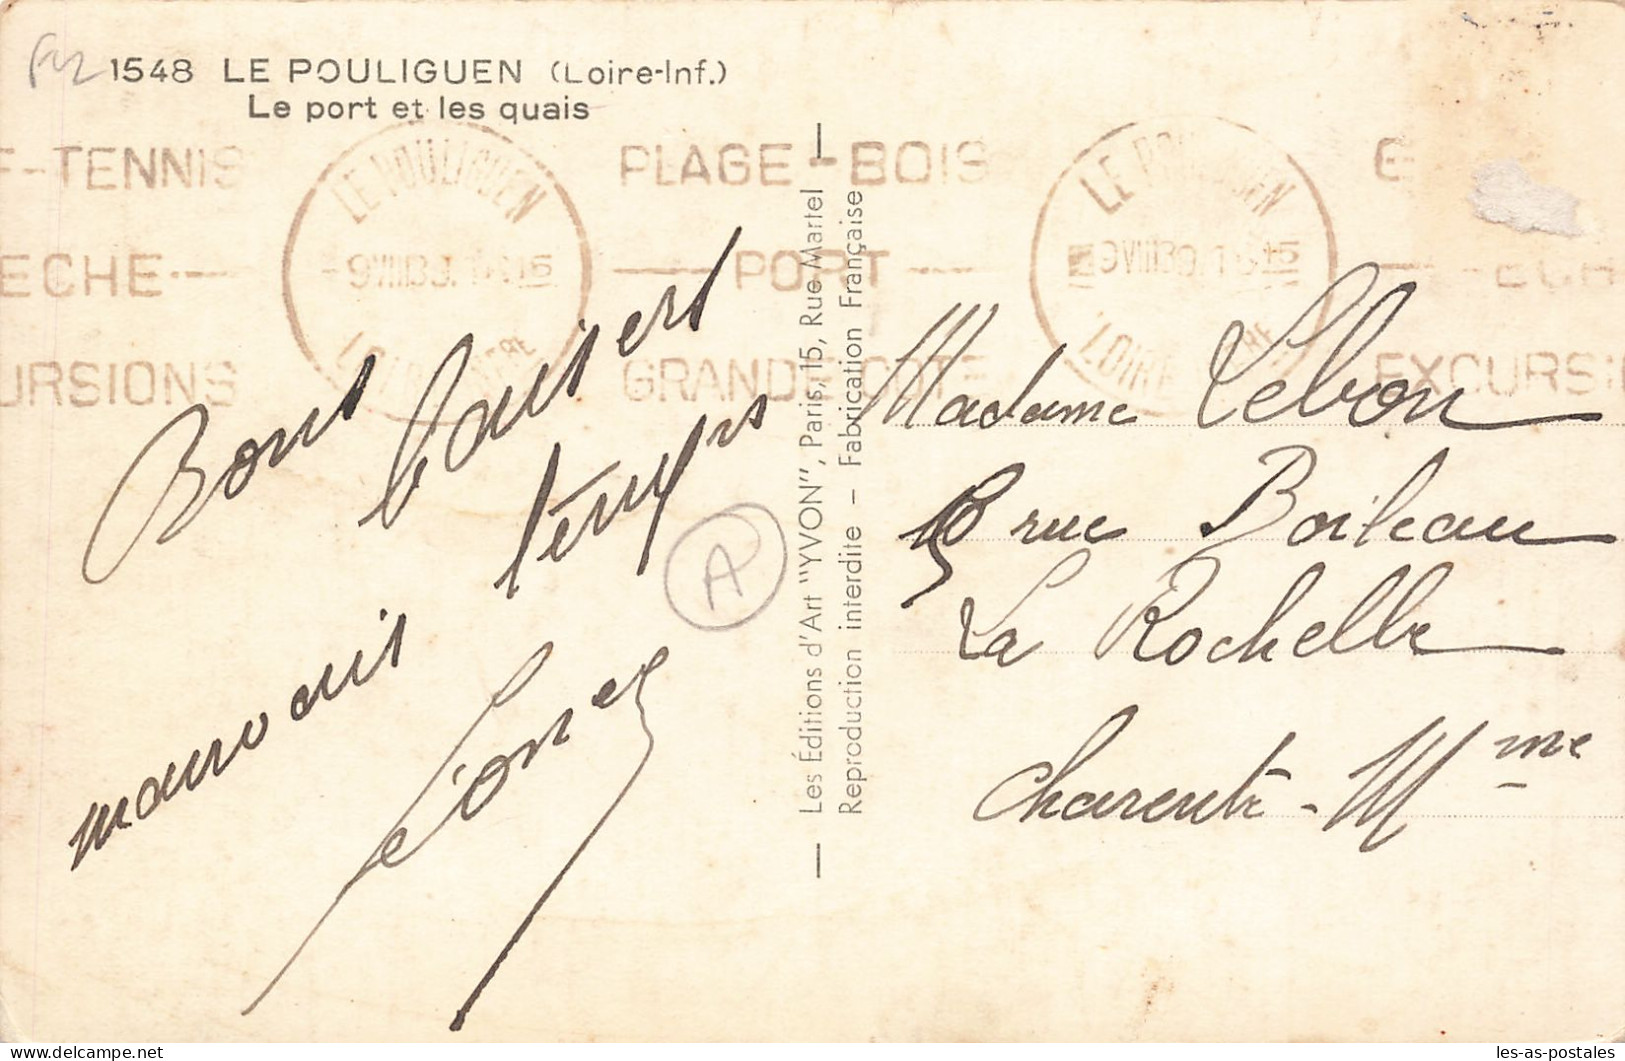 1548 LE POULIGUEN (Loire-Inf.)
Le port et les quais
F-TENNIS
ECHE
URSIONS
LE POULIGUEN
9 VIII 39
PLAGE-BOIS
PORT
GRANDE COTE
LE POULIGUEN
9 VIII 39
EXCURSI
Bons baisers
mauvais temps
A
Les Éditions d'Art "YVON", Paris, 15, Rue Martel
Reproduction interdite - Fabrication Française
Madame Lebon
rue Boileau
La Rochelle
Charente-Mme
les-as-postales